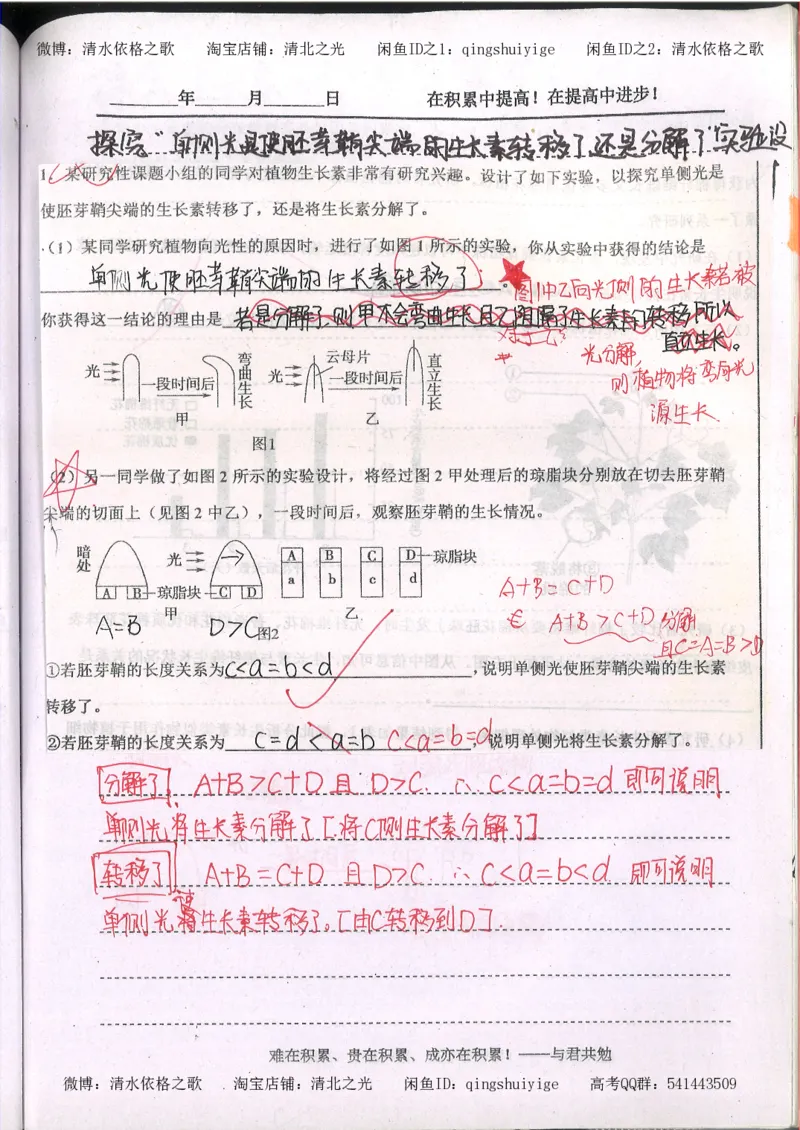 微博：清水依格之歌 淘宝店铺：清北之光 闲鱼ID之1：qingshuiyige 闲鱼ID之2：清水依格之歌
______年______月______日 在积累中提高！在提高中进步！
探究"单侧光是使胚芽鞘尖端的生长素转移了还是分解了"实验设
1. 某研究性课题小组的同学对植物生长素非常有研究兴趣。设计了如下实验，以探究单侧光是
使胚芽鞘尖端的生长素转移了，还是将生长素分解了。
（1）某同学研究植物向光性的原因时，进行了如图 1 所示的实验，你从实验中获得的结论是
单侧光使胚芽鞘尖端的生长素转移了。
图1中乙向光侧的生长素若被
光分解，
则植物将弯向光
源生长
你获得这一结论的理由是 若是分解了，则甲不会弯曲生长且乙阻隔了生长素的转移所以
直立生长。
光 一段时间后 弯曲生长 光 云母片 一段时间后 直立生长
甲 乙
图1
（2）另一同学做了如图 2 所示的实验设计，将经过图 2 甲处理后的琼脂块分别放在切去胚芽鞘
尖端的切面上（见图 2 中乙），一段时间后，观察胚芽鞘的生长情况。
暗处 光 A B C D 琼脂块
a b c d
A B 琼脂块 C D
甲 乙
A=B D>C 图2
A+B=C+D
A+B>C+D 分解
且C=A=B>D
①若胚芽鞘的长度关系为 c<a=b<d ，说明单侧光使胚芽鞘尖端的生长素
转移了。
②若胚芽鞘的长度关系为 c=d<a=b c<a=b=d ，说明单侧光将生长素分解了。
分解了， A+B>C+D 且 D>C. ∴ c<a=b=d 即可说明
单侧光将生长素分解了[将C侧生长素分解了]
转移了 A+B=C+D 且 D>C ∴ c<a=b<d 即可说明
单侧光使生长素转移了。[由C转移到D].
难在积累、贵在积累、成亦在积累！——与君共勉
微博：清水依格之歌 淘宝店铺：清北之光 闲鱼ID：qingshuiyige 高考QQ群：541443509